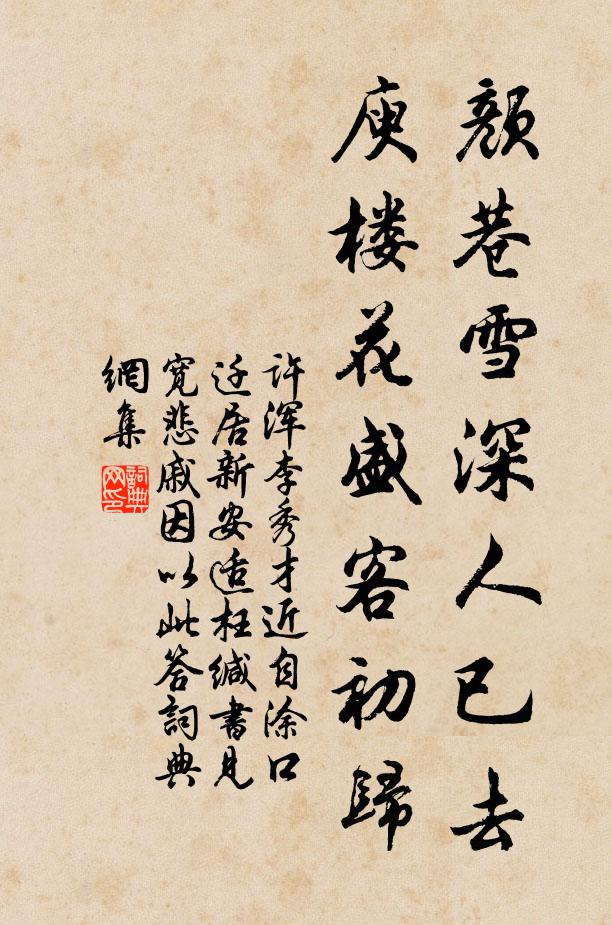 颜巷雪深人已去
庾楼花盛客初歸
许浑李秀才近自涂口
迁居新安适枉缄書見
宽悲戚因以此答詞典
網集
詞典网印